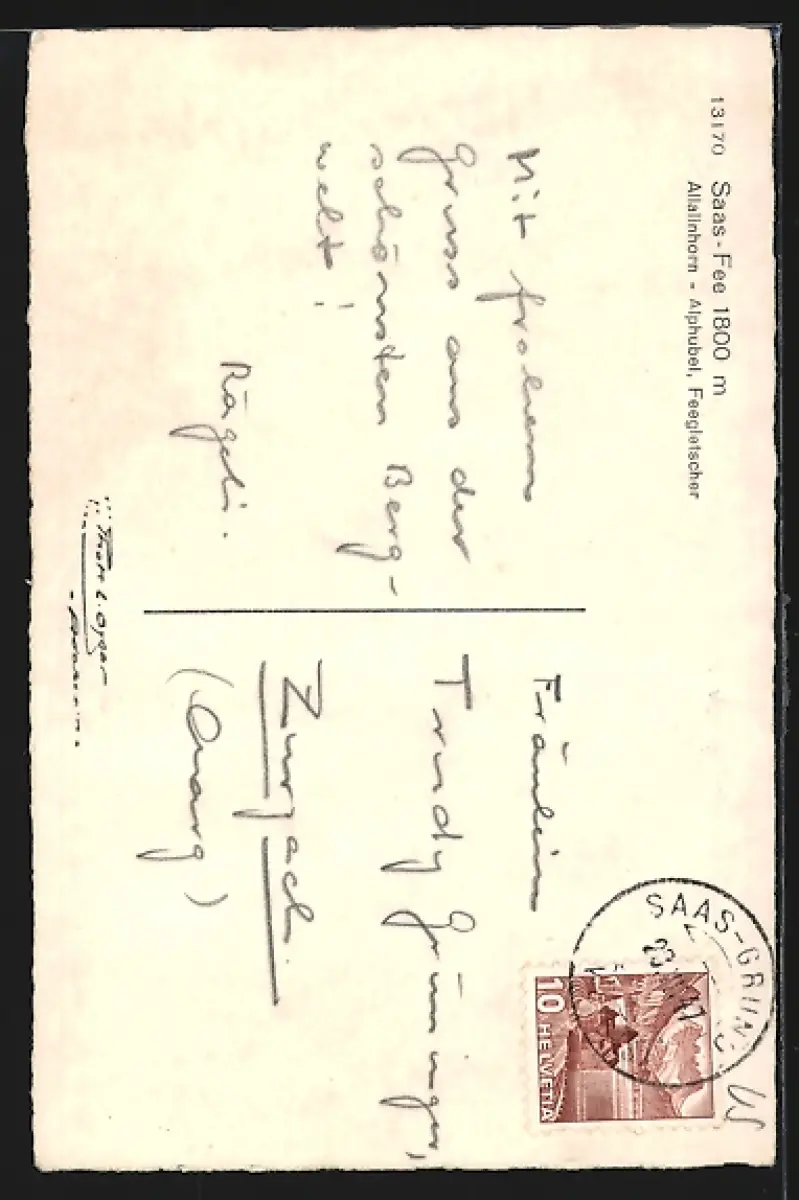 13170 Saas-Fee 1800 m
Allalinhorn - Alphubel, Feegletscher
Mit frohem
Gruss aus der
schönsten Berg-
welt!
Nägeli.
Fräulein
Trudy Grüninger,
Zurzach
(Aarg)
SAAS-GRUND
10 HELVETIA